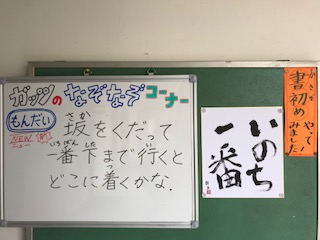 ガッツのなぞなぞコーナー
もんだい
NEW【新】
ニュー
さか
坂をくだって
いちばんした
一番下まで行くと
どこに着くかな.
いのち
一番
かきぞ
書初め
やって!
みました!